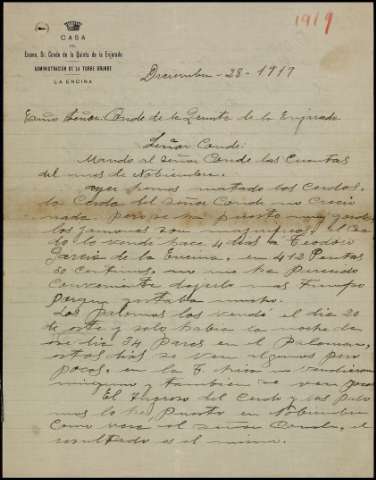 1919
CASA
DEL
Excmo. Sr. Conde de la Quinta de la Enjarada
ADMINISTRACIÓN DE LA TORRE GRANDE
LA ENCINA
Diciembre - 28 - 1919
Exmo Señor Conde de la Quinta de la Enjarada
Señor Conde:
Mando al Señor Conde las Cuentas
del mes de Nobiembre.
ayer hemos matado los Cerdos,
la Cerda del Señor Conde no
pero se ha puesto muy gorda
los Jamones son el
lo vendi hace 4 dias a Teodoro
Garcia de la Encina, en 412 Pesetas
50 Centimos, no me ha Parecido
Conveniente dejarlo mas tiempo
Porque gastaba mucho.
Las Palomas las vendí el dia 20
de este y solo habia la noche de
ese dia 34 Pares en el Palomar,
estos dias se ven algunas pero
pocas, en la vendieron
ninguno y tambien se ven pocas
El Ingreso del Cerdo y las palo
mas lo he Puesto en Nobiembre
Como verá el Señor Conde, el
resultado es el mismo.